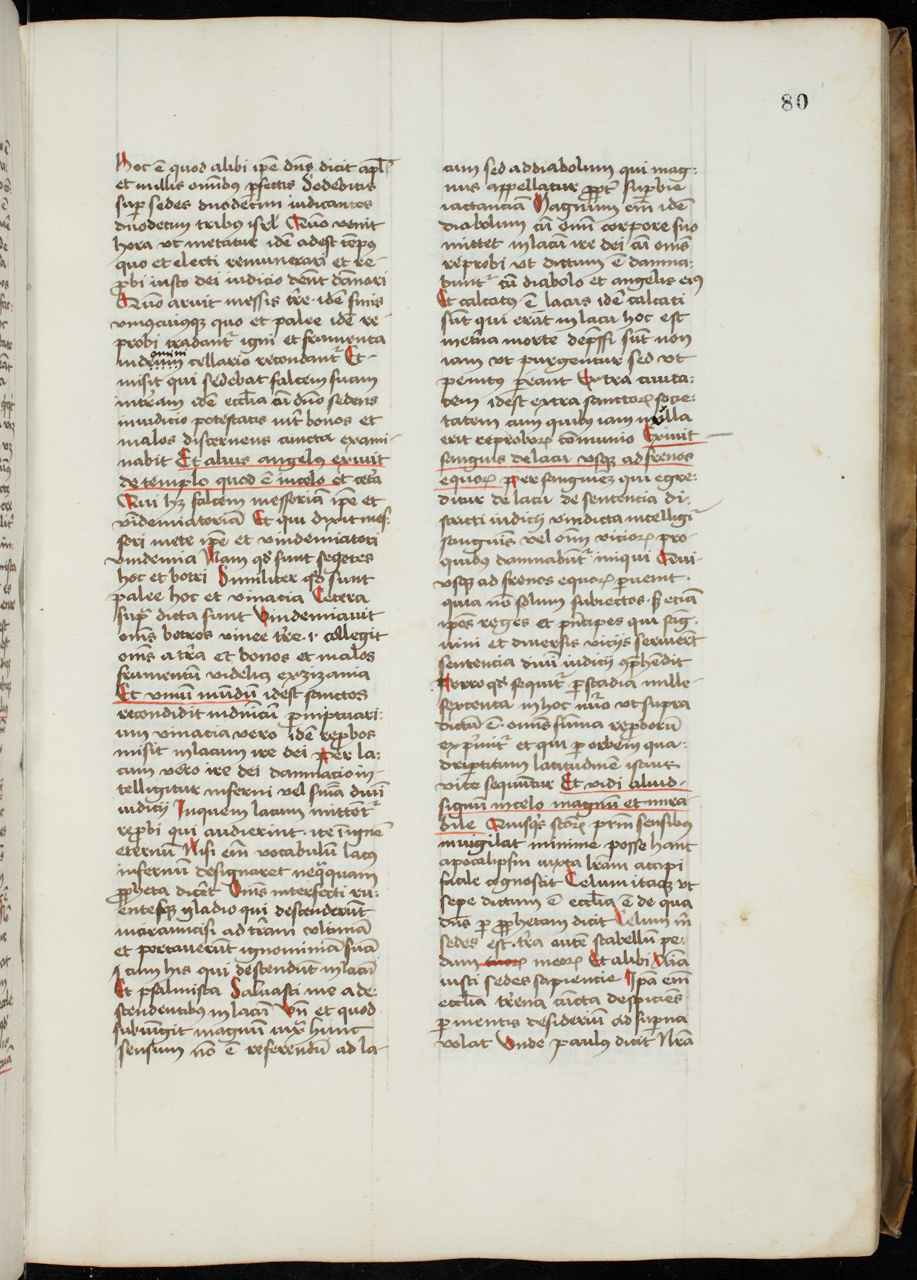 80
Hoc ē quod alibi ip̄e dn̄s dicit apl̄
et in illis om̄ibus p̄fectis Sedebitis
sup̄ sedes duodecim iudicantes
duodecim tribus isrl̄ Qm̄ venit
hora vt metatur idē adest tēpꝰ
quo et electi remunerari et re-
p̄bi iusto dei iudicio debēt dāmari
Qm̄ aruit messis t̄re · idē finis
vniꝰcuiusqꝫ quo et palee idē re-
probi tradant᷑ igni et frumenta
cellario recondant᷑ Et-
misit qui sedebat falcem suam
in t̄ram idē eccl̄ia cū dn̄o sedens
in iudicio potestatis int̄ bonos et
malos discernens cuncta exami-
nabit Et alius angelꝰ exiuit
de templo quod ē in celo et cet̄a
Qui hꝫ falcem messoriā ip̄e et
vīdemiatoriā Et qui dixit mes-
sori mete ip̄e et vindemiatori
vindemia Nam qd̄ sunt segetes
hoc et botri Similiter qd̄ sunt
palee hoc et vinacia Cetera
sup̄ dicta sunt Vindemiauit
om̄s botros vinee t̄re · i · collegit
om̄s a t̄ra et bonos et malos
frumentū videlicꝫ et zizania
Et vinū mūdū id est sanctos
recondidit in dn̄icū p̄mptuari-
um vinacia vero idē rep̄bos
misit in lacum ire dei Per la-
cum vero ire dei damnacio in-
telligitur inferni vel sn̄ia diuī
iudicij In quem lacum mittent᷑
rep̄bi qui audierint · ite ī ignē
eternū Nisi em̄ vocabulū lacꝰ
infernū designaret neq̄quam
p̄pheta diceret Om̄s interfecti ru-
entesqꝫ gladio qui descenderūt
incircumcisi ad t̄ram vltimā
et portauerūt ignominiā suā
cum his qui descendūt in lacū
Et psalmista Saluasti me a de-
scendentibus in lacū Vn̄ et quod
subiungit magnū iux̄ hunc
sensum nō ē referendū ad la-
cum sed ad diabolum qui mag-
nus appellatur ppt̄ supbie
iactanciā Magnum em̄ idē
diabolum cū om̄i corpore suo
mittet in lacū ire dei cū om̄s
reprobi vt dictum ē damna-
bunt᷑ cū diabolo et angelis eiꝰ
Et calcatꝰ ē lacus idē calcati
sūt qui erāt in lacu hoc est
in et̄na morte dep̄ssi sūt non
iam vt purgentur sed vt
penitꝰ pereant Extra ciuita-
tem id est extra sanctoꝝ socie-
tatem cum quibꝰ iam nulla
erit reproboꝝ cōmunio Exiuit
sanguis de lacu vsqꝫ ad frenos
equoꝝ Per sanguinē qui egre-
ditur de lacu de sentencia di-
stricti iudicij vindicta intelligit᷑
sanguis vel om̄ vicioꝝ pro
quibꝰ damnabunt᷑ iniqui Qui
vsqꝫ ad frenos equoꝝ p̄uenit ·
quia nō solum subiectos · sꝫ etiā
ip̄os reges et p̄ncipes qui sāg-
uini et diuersis vicijs seruierūt
sentencia diuī iudicij cōp̄hendit
Porro qd̄ sequit᷑ p̄ stadia mille
sexcenta in hoc nūo vt supra
dictū ē · om̄s sum̄a rep̄borū
exp̄mit᷑ et qui p̄ orbem qua-
dripartitum latitudinē istius
vite sequūtur Et vidi aliud
signū in celo magnū et mira
bile Quisqꝫ sc̄oꝝ prim̄ sensibus
inuigilat minime posse hanc
apocalipsin iuxta lr̄am accipi
facile cognoscit Celum itaqꝫ vt
sepe dictum ē eccl̄ia ē de qua
dn̄s p̄ p̄phetam dicit Celum m̄
sedes est · t̄ra autē scabellū pe-
dum meoꝝ Et alibi Aīa
iusti sedes sapiencie Ip̄a em̄
eccl̄ia t̄rena cūcta despiciens
p̄ mentis desideriū ad sup̄na
volat Vnde Paulus dicit Nr̄a